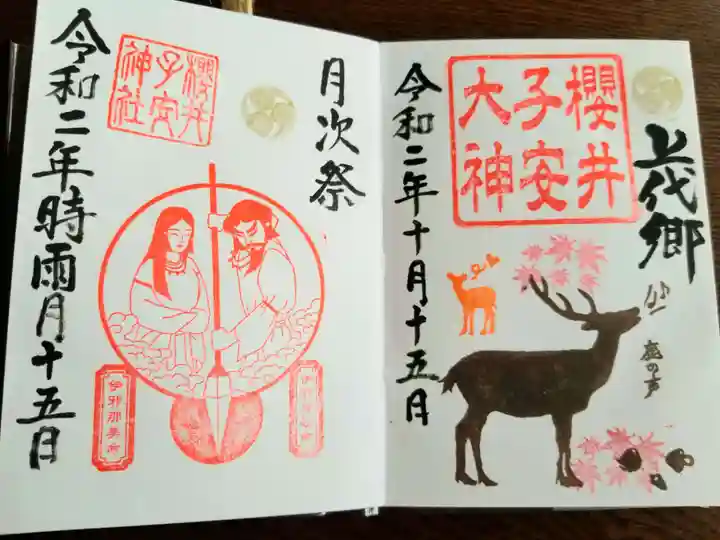 上代郷
櫻井
子安
大神
鹿の声
令和二年十月十五日
月次祭
櫻井
子安
神社
伊邪那美命
令和二年時雨月十五日